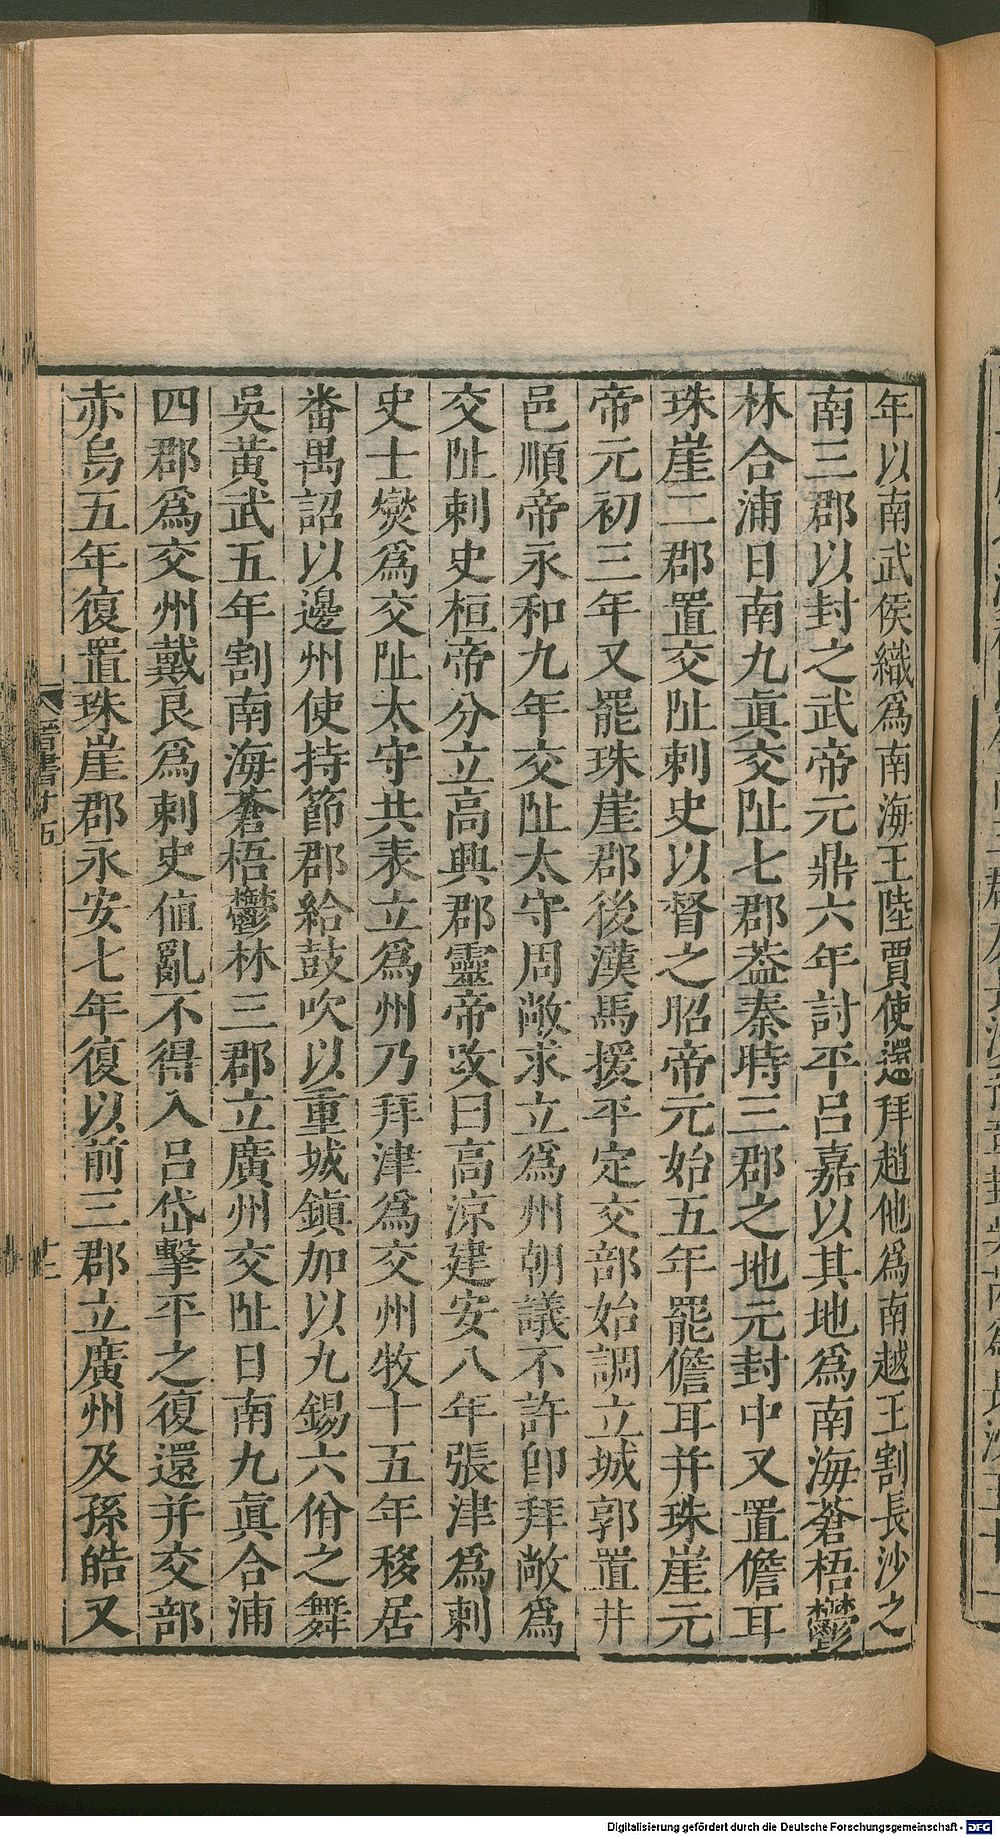 年以南武侯織爲南海王陸賈使還拜趙他爲南越王割長沙之
南三郡以封之武帝元鼎六年討平呂嘉以其地爲南海蒼梧鬱
林合浦日南九眞交阯七郡葢秦時三郡之地元封中又置儋耳
珠崖二郡置交阯刺史以督之昭帝元始五年罷儋耳并珠崖元
帝元初三年又罷珠崖郡後漢馬援平定交部始調立城郭置井
邑順帝永和九年交阯太守周敞求立爲州朝議不許卽拜敞爲
交阯刺史桓帝分立高興郡靈帝攺曰高涼建安八年張津爲刺
史士燮爲交阯太守共表立爲州乃拜津爲交州牧十五年移居
番禺詔以邊州使持節郡給鼓吹以重城鎭加以九錫六佾之舞
吳黃武五年割南海蒼梧鬱林三郡立廣州交阯日南九眞合浦
四郡爲交州戴良爲刺史値亂不得入呂岱擊平之復還并交部
赤烏五年復置珠崖郡永安七年復以前三郡立廣州及孫皓又
晉書十五
Digitalisierung gefördert durch die Deutsche Forschungsgemeinschaft - DFG